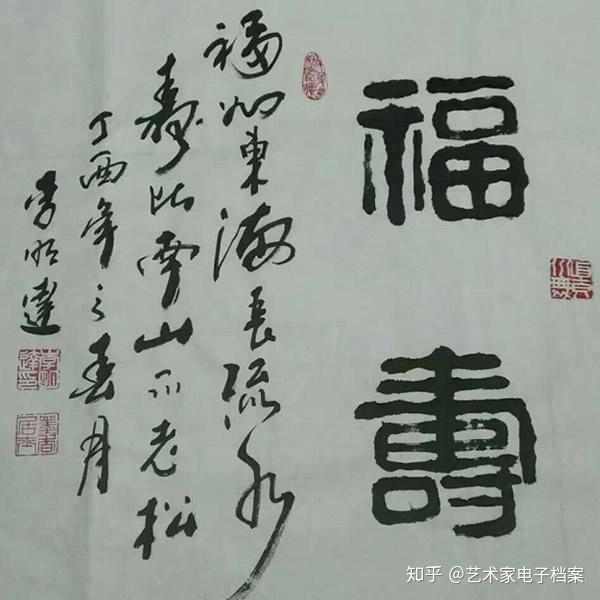 福壽
福如東海長流水
壽比南山不老松
丁酉年之春月
李明達
李明達印
知乎 @艺术家电子档案